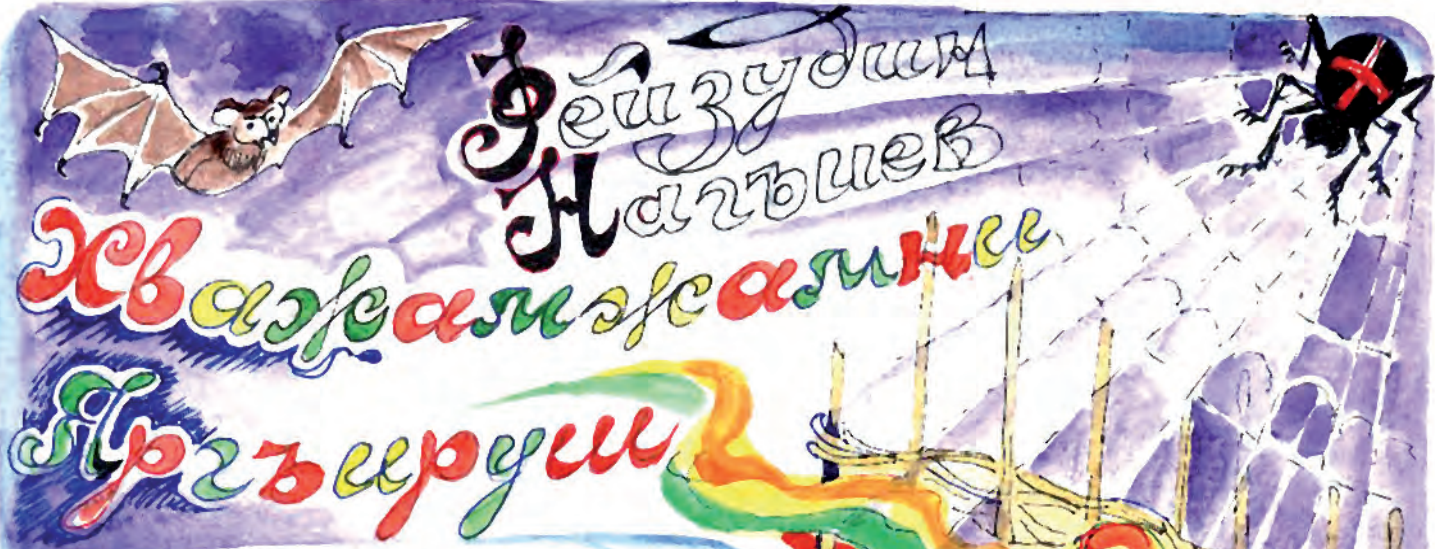 Фейзудин
Нагъиев
Хважамжамни
Яргъируш